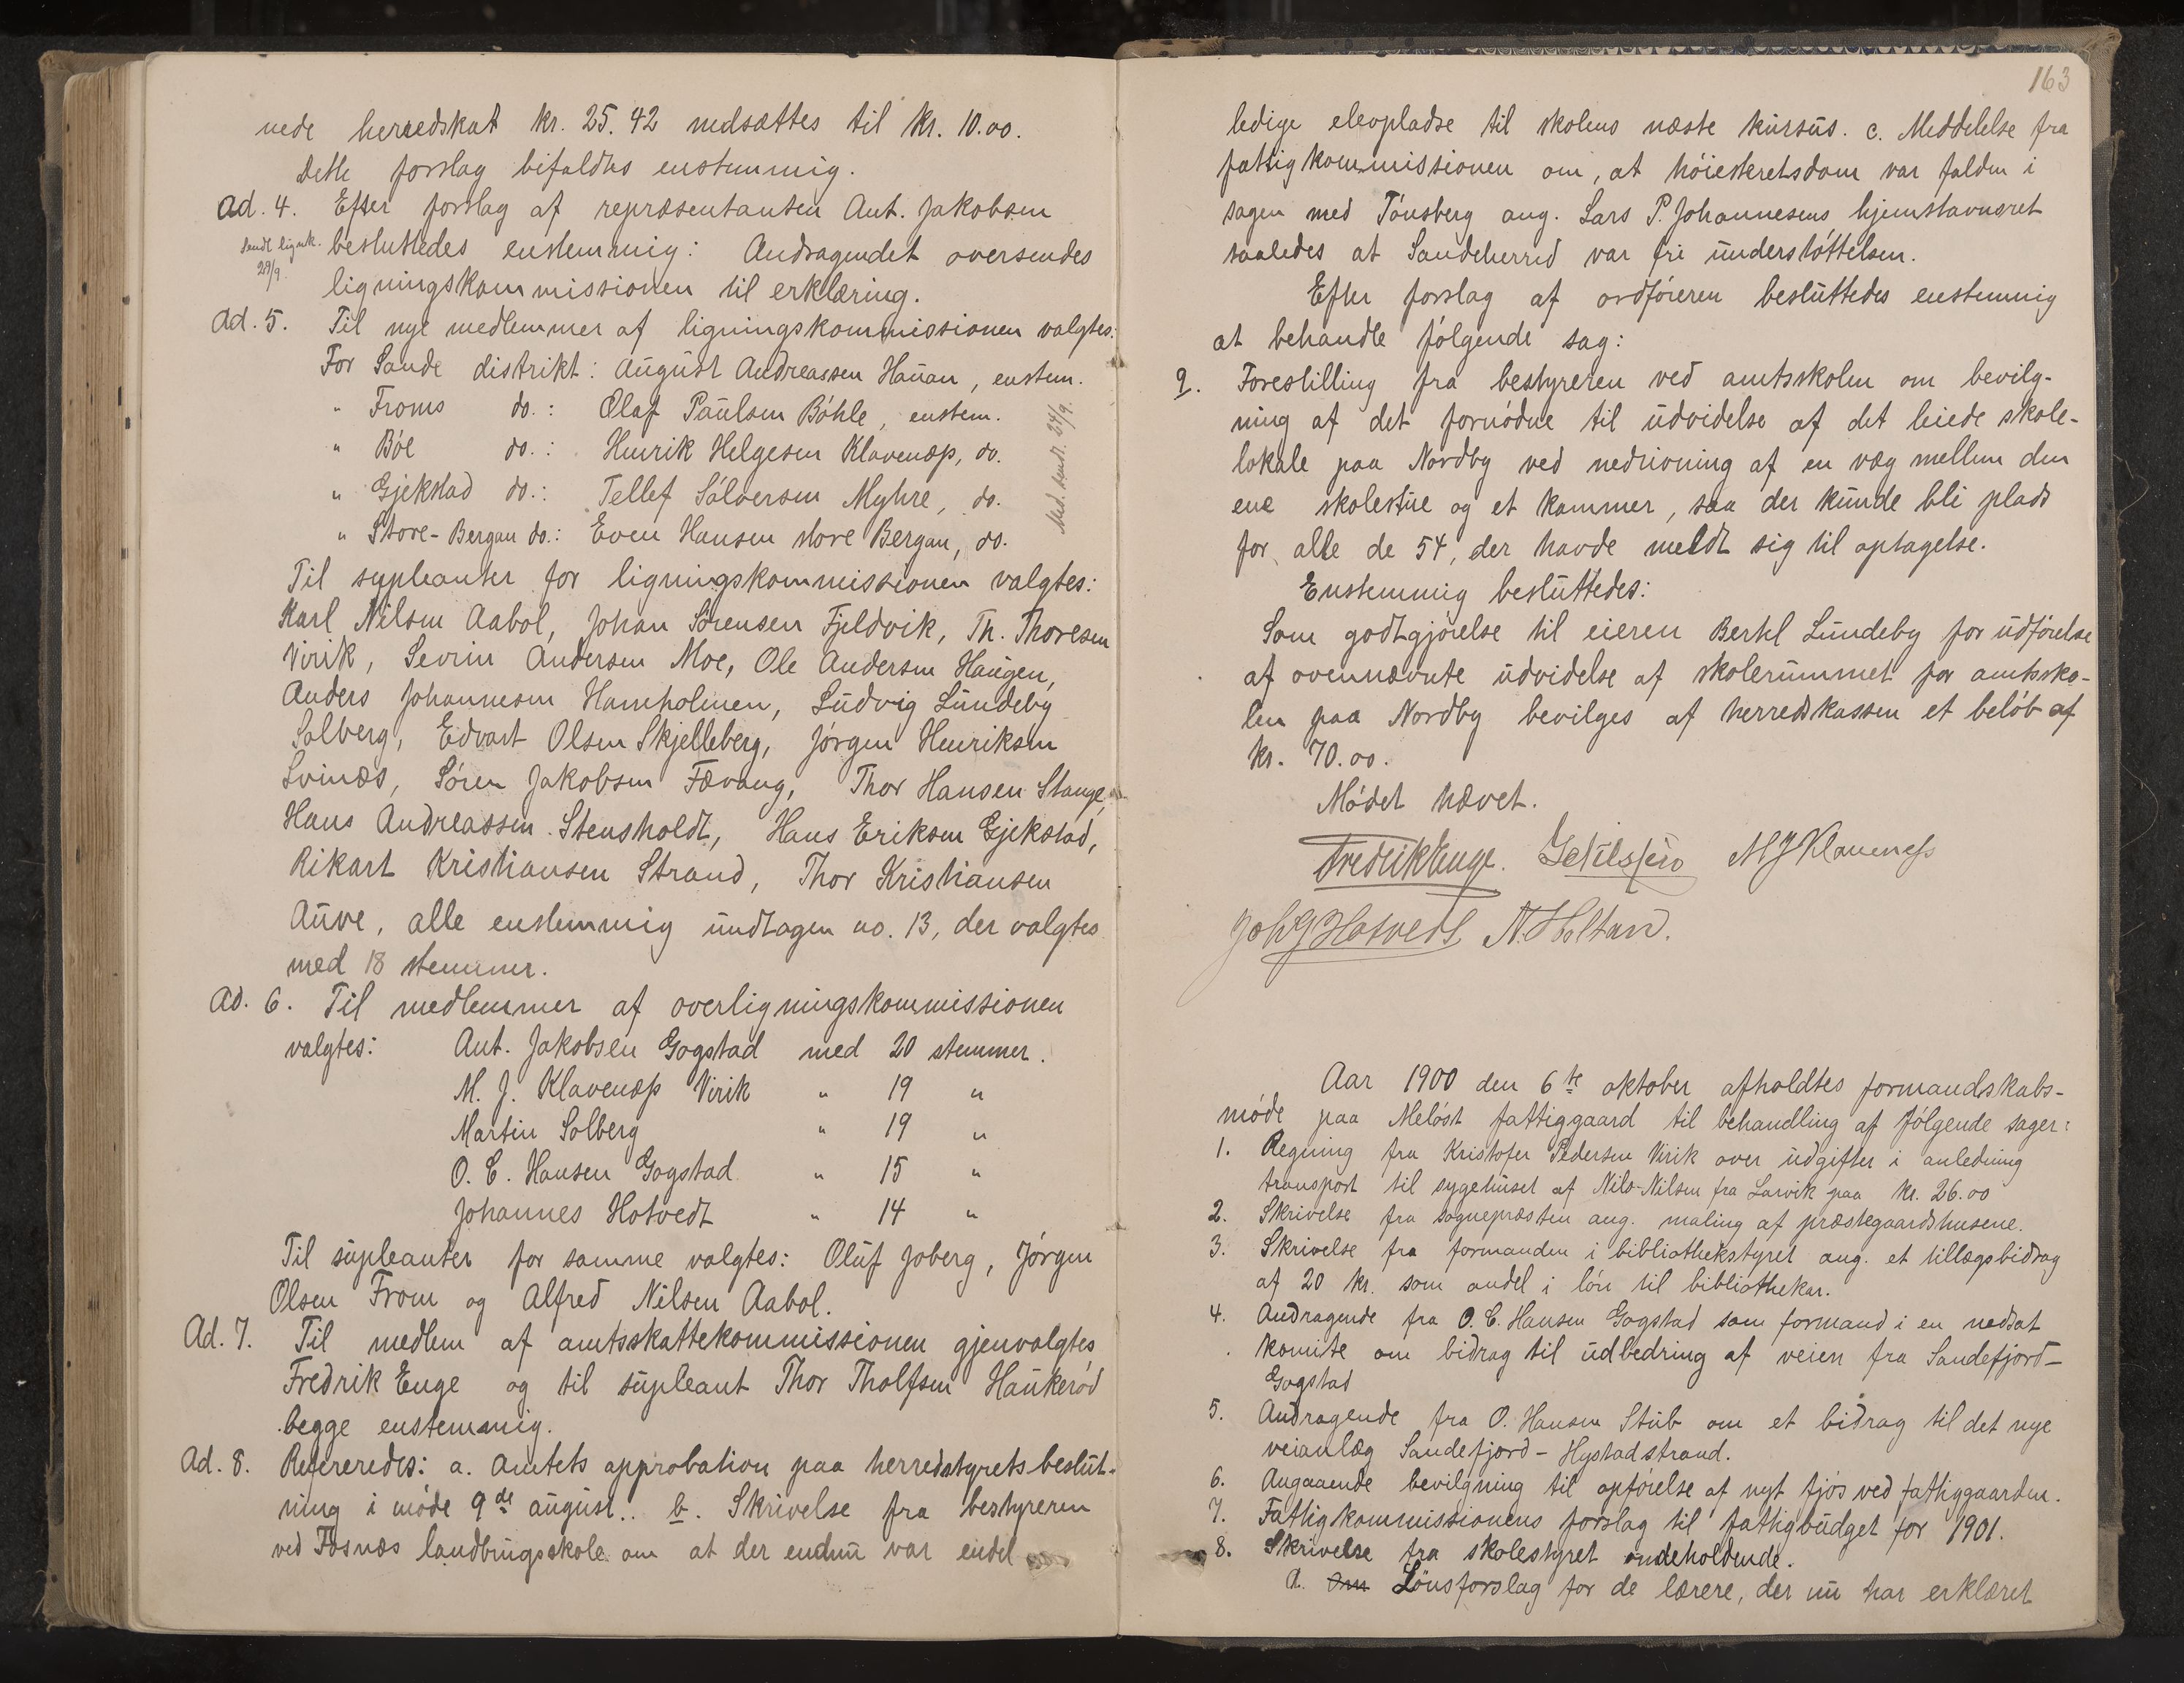 nede herredskat kr. 25.42 nedsættes til kr. 10.00.
Dette forslag bifaldtes enstemmig.
Ad. 4. Efter forslag af repræsentanten Ant. Jakobsen
besluttedes enstemmig: Andragendet oversendes
Sendt lignk. 29/9.
ligningskommissionen til erklæring.
Ad. 5. Til nye medlemmer af ligningskommissionen valgtes:
For Sande distrikt: August Andreassen Hauan, enstem.
" Froms do.: Olaf Paulsen Bøhle, enstem.
" Bøe do.: Henrik Helgesen Klavenæs, do.
" Gjekstad do.: Tellef Sølversen Myhre, do.
" Store-Bergan do.: Even Hansen store Bergan, do.
Med. sendt. 24/9.
Til sypleanter for ligningskommissionen valgtes:
Karl Nilsen Aabol, Johan Sørensen Fjeldvik, Th. Thoresen
Virik, Sevrin Andersen Moe, Ole Andersen Haugen,
Anders Johannesen Hamholmen, Ludvig Lundeby
Solberg, Edvart Olsen Skjelleberg, Jørgen Henriksen
Svinæs, Søren Jakobsen Fævang, Thor Hansen Stange,
Hans Andreassen Stensholdt, Hans Eriksen Gjekstad,
Rikart Kristiansen Strand, Thor Kristiansen
Auve, alle enstemmig undtagen no. 13, der valgtes
med 18 stemmer.
Ad. 6. Til medlemmer af overligningskommissionen
valgtes: Ant. Jakobsen Gogstad med 20 stemmer.
M. J. Klavenæs Virik " 19 "
Martin Solberg " 19 "
O. C. Hansen Gogstad " 15 "
Johannes Hotvedt " 14 "
Til supleanter for samme valgtes: Oluf Joberg, Jørgen
Olsen From og Alfred Nilsen Aabol.
Ad. 7. Til medlem af amtsskattekommissionen gjenvalgtes
Fredrik Enge og til supleant Thor Tholfsen Haukerød
begge enstemmig.
Ad. 8. Refereredes: a. Amtets approbation paa herredstyrets beslut-
ning i møde 9de august.. b. Skrivelse fra bestyreren
ved Fosnæs landbrugsskole om at der endnu var endel
163
ledige elevpladse til skolens næste kursus. c. Meddelelse fra
fattigkommissionen om, at høiesteretsdom var falden i
sagen med Tønsberg ang. Lars P. Johannesens hjemstavnsret
saaledes at Sandeherred var fri understøttelsen.
Efter forslag af ordføreren besluttedes enstemmig
at behandle følgende sag:
9. Forestilling fra bestyreren ved amtsskolen om bevilg-
ning af det fornødne til udvidelse af det leiede skole-
lokale paa Nordby ved nedrivning af en væg mellem den
ene skolestue og et kammer, saa der kunde bli plads
for alle de 54, der havde meldt sig til optagelse.
Enstemmig besluttedes:
Som godtgjørelse til eieren Bertel Lundeby for udførelse
af ovennævnte udvidelse af skolerummet for amtssko-
len paa Nordby bevilges af herredskassen et beløb af
kr. 70.00.
Mødet hævet.
Fredrik Enge. M J Klaveness
Joh G Hotvedt N. Holtan.
Aar 1900 den 6te oktober afholdtes formandskabs-
møde paa Meløst fattiggaard til behandling af følgende sager:
1. Regning fra Kristofer Pedersen Virik over udgifter i anledning
transport til sygehuset af Nils Nilsen fra Larvik paa kr. 26.00
2. Skrivelse fra sognepræsten ang. maling af præstegaardshusene.
3. Skrivelse fra formanden i bibliothekstyret ang. et tillægsbidrag
af 20 kr. som andel i løn til bibliothekar.
4. Andragende fra O. C. Hansen Gogstad som formand i en nedsat
komite om bidrag til udbedring af veien fra Sandefjord-
Gogstad
5. Andragende fra O. Hansen Stub om et bidrag til det nye
veianlæg Sandefjord - Hystadstrand.
6. Angaaende bevilgning til opførelse af nyt fjøs ved fattiggaarden.
7. Fattigkommissionens forslag til fattigbudget for 1901.
8. Skrivelse fra skolestyret indeholdende.
a. Om Lønsforslag for de lærere, der nu har erklæret